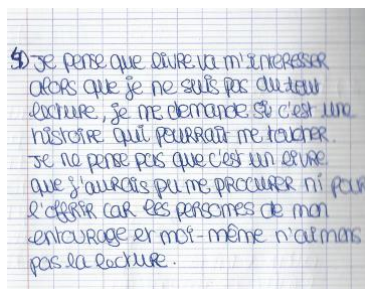 4) Je pense que livre va m'intéresser
alors que je ne suis pas du tout
lecture, je me demande si c'est une
histoire qui pourrait me toucher.
Je ne pense pas que c'est un livre
que j'aurais pu me procurer ni pour
l'offrir car les personnes de mon
entourage et moi-même n'aimons
pas la lecture.